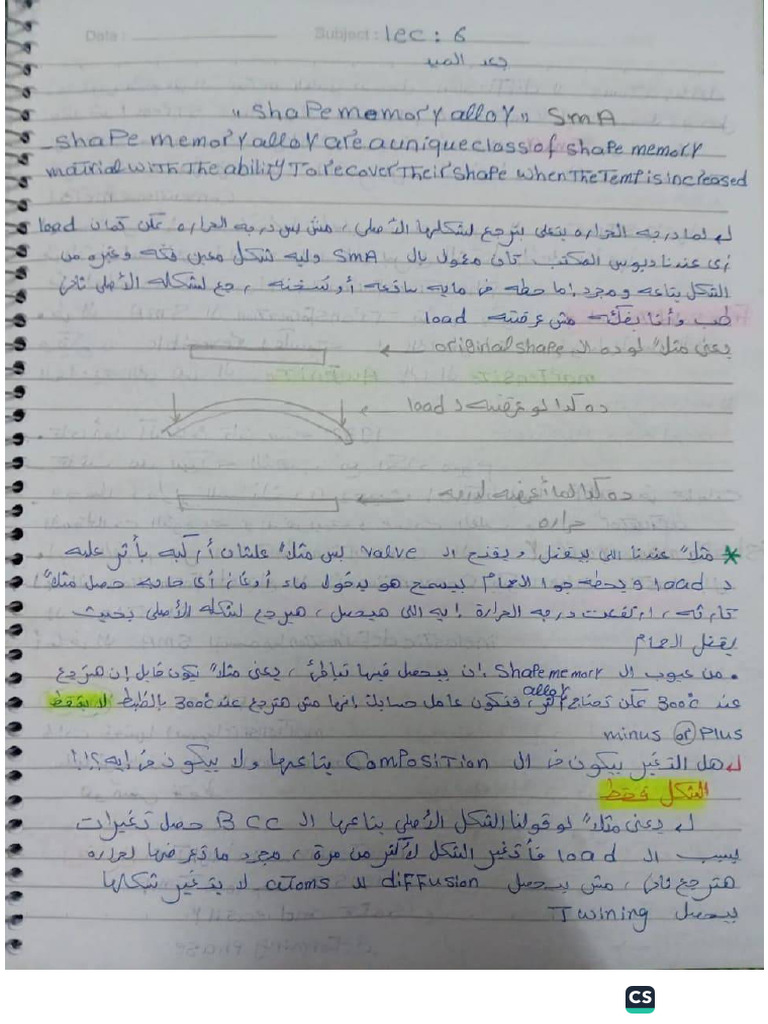 Date : Subject : lec : 6
بعد العيد
"shape memory alloy" SMA
shape memory alloy are a unique class of shape memory
matrial with The ability To recover Their shape when The Temp is increased
لما درجه الحراره بتعلى بترجع لشكلها الأصلى ، مش بس درجه الحراره ممكن كمان load
زى عندنا دبوس المكتب كان معمول بال SMA وليه شكل معين فكه وغيره من
الشكل بتاعه وبمجرد إما حطه فى مايه ساقعه أو سخنه ، رجع لشكله الأصلى تانى
طب وأنا بفكه مش عرضته load
يعنى مثلاً لو ده ال original shape
ده كدا لو عرضته د load
ده كدا لما أعرضه لدرجه
حراره
* مثلاً عندنا اللى بيقفل ويفتح ال valve بس مثلاً علشان أركبه بأثر عليه
د load و بحطه جوا الصمام بيسمح هو بدخول ماء أو غاز أى حاجه حصل مثلاً
كارثه ، ارتفعت درجه الحرارة إيه اللى هيحصل ، هيرجع لشكله الأصلى بحيث
يقفل الصمام
. من عيوب ال shape memory alloy إن بيحصل فيها تباطئ ، يعنى مثلاً بكون قايل إن هترجع
عند 300c ممكن تحتاج أكتر ، فبكون عامل حسابك إنها مش هترجع عند 300c بالظبط لا بحط
minus or Plus
هل التغير بيكون فى ال Composition بتاعها ولا بيكون فى إيه ؟!!
الشكل فقط
يعنى مثلاً لو قولنا الشكل الأصلى بتاعها ال BCC حصل تغيرات
بسبب ال load فأتغير الشكل لأكتر من مرة ، بمجرد ما تعرضها لحراره
هترجع تانى ، مش بيحصل diffusion ال atoms لا يتغير شكلها
بيحصل Twining
CS